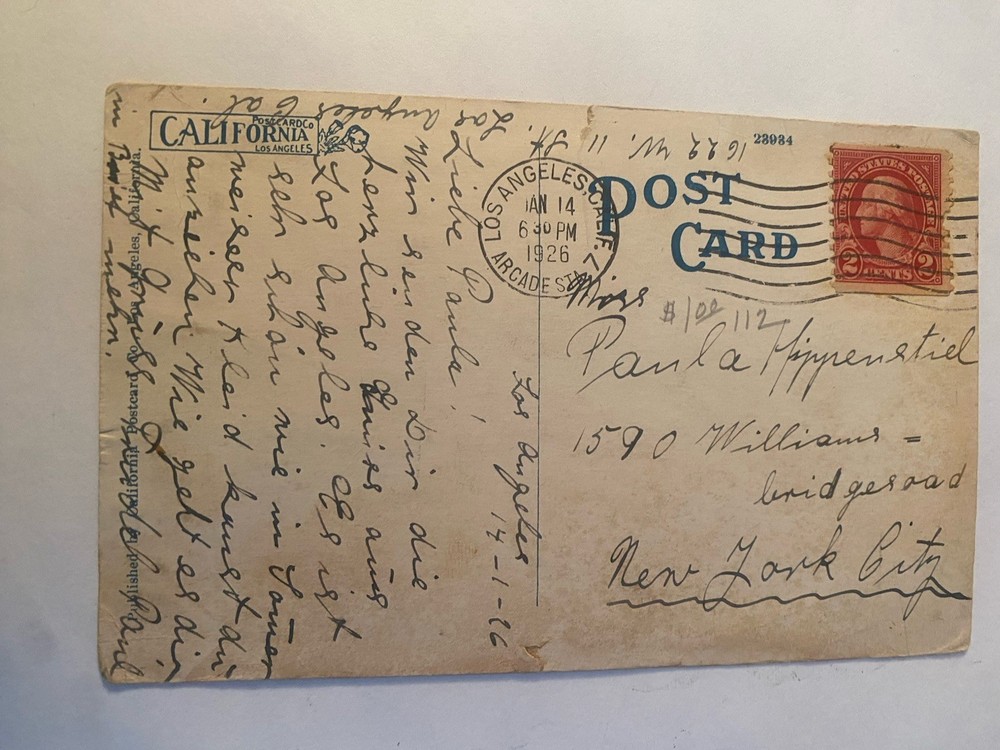 CALIFORNIA
POSTCARD CO
LOS ANGELES
23934
POST
CARD
LOS ANGELES, CALIF.
JAN 14
6 30 PM
1926
ARCADE STA.
UNITED STATES POSTAGE
2 CENTS 2
1622 W. 11 St.
Los Angeles Cal.
Los Angeles
14-1-26
Liebe Paula!
Wir senden Dir die
herzliche Grüss aus
Los Angeles. Es ist
sehr schön wie in Somer
weiser Kleid kanst du
anziehen Wie geht es dir
Mit Grüss Paul
mehr.
Miss
$1.00 112
Paula Hippenstiel
1590 Williams=
bridgeroad
New York City
Published by California Postcard Co., Los Angeles, California.